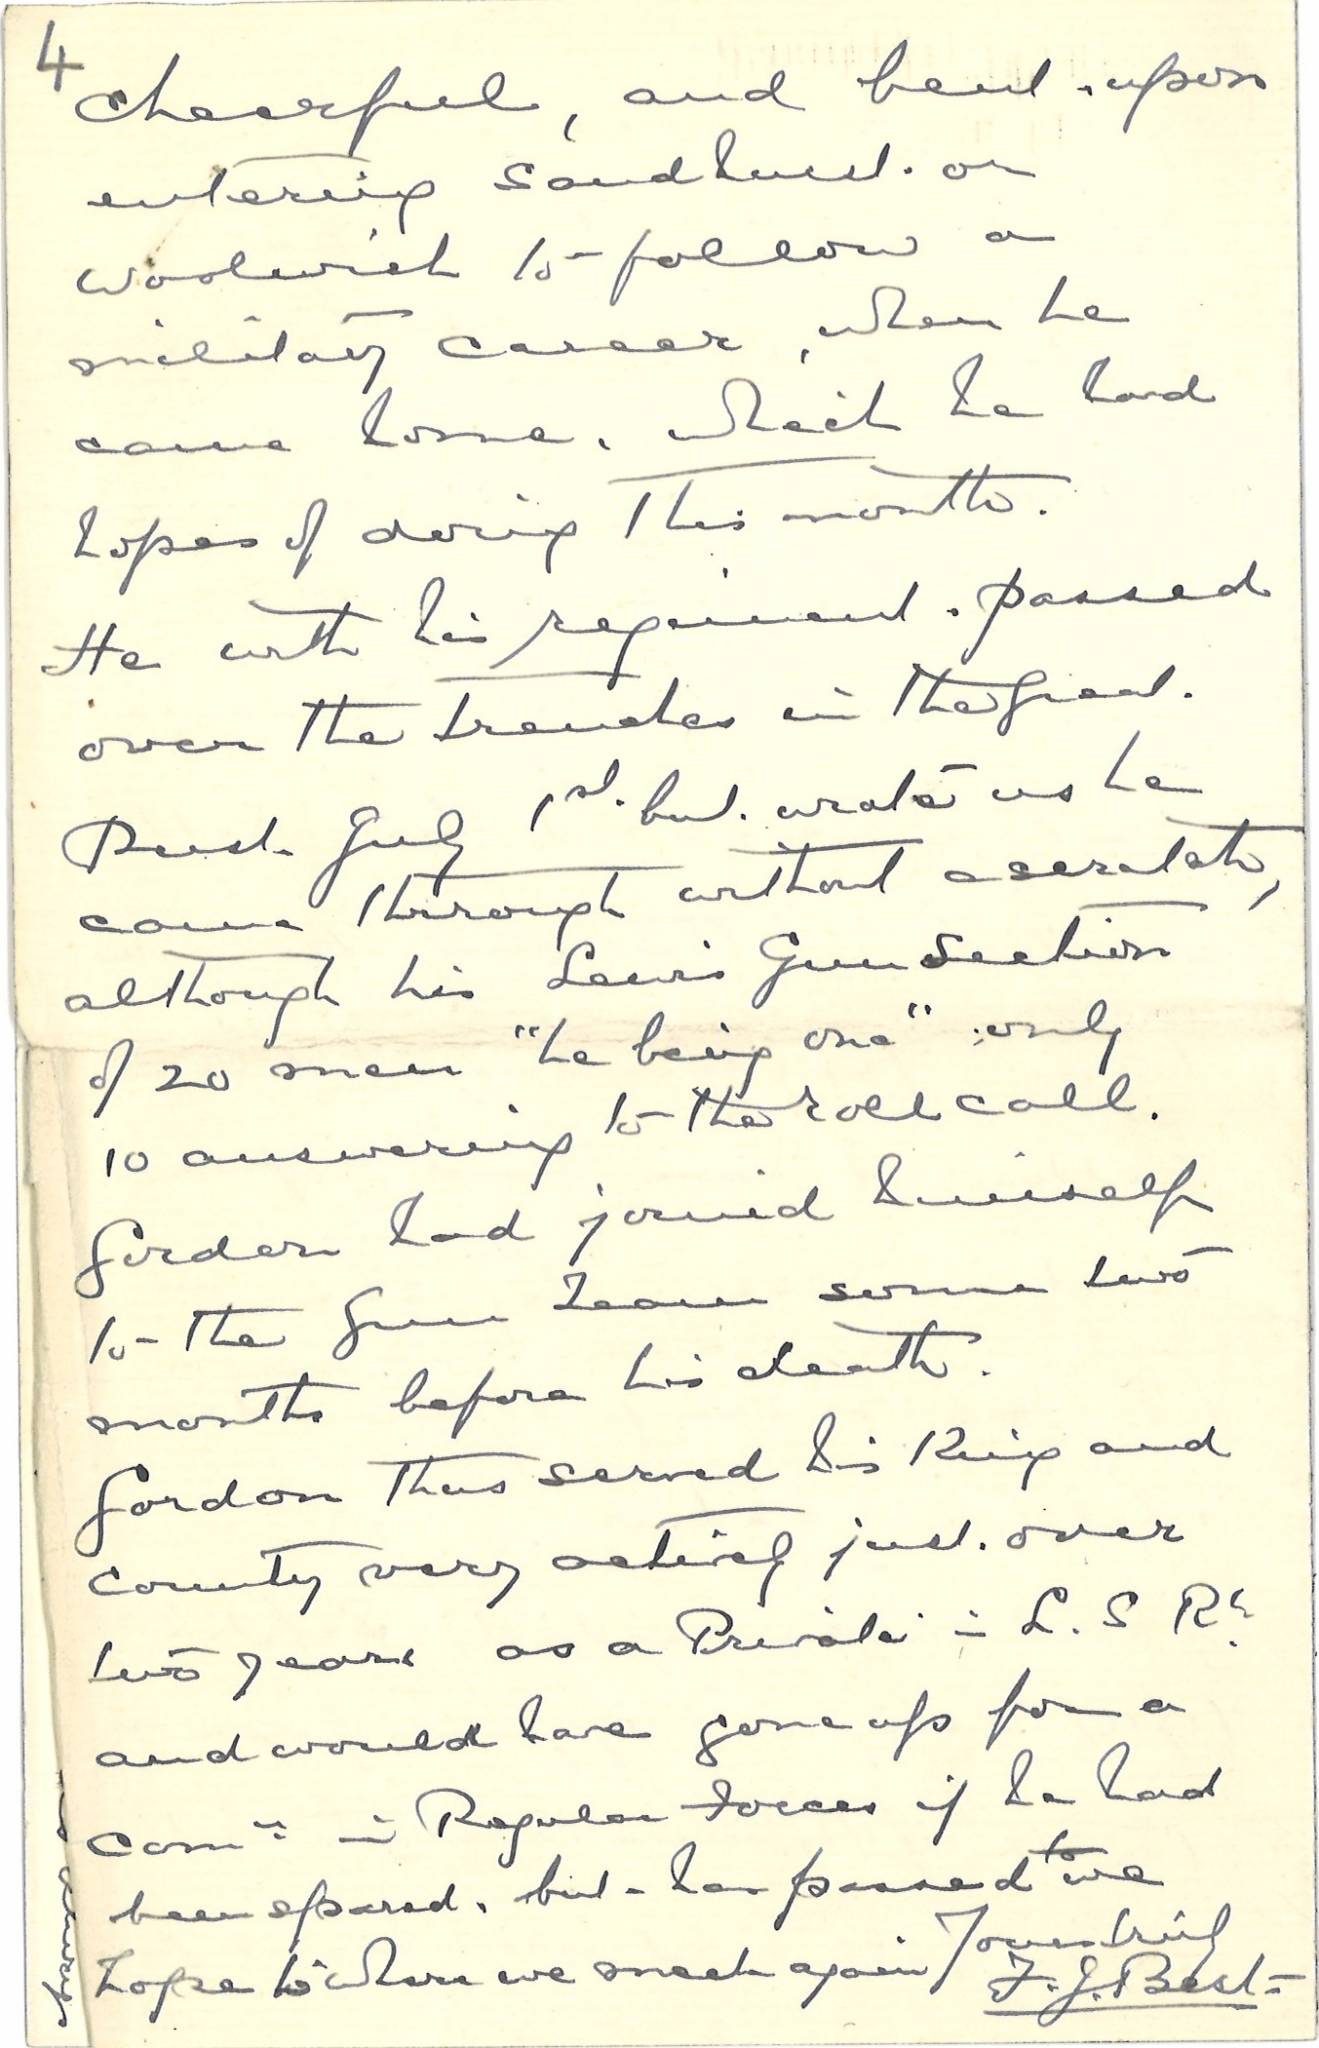 4
cheerful, and bent upon
entering Sandhurst or
Woolwich to follow a
military career, when he
came home, which he had
hopes of doing this month.
He with his regiment. passed
over the trenches in the Great.
Push July 1st. but. wrote us he
came through without a scratch,
although his Lewis Gun Section
of 20 men "he being one" only
10 answering to the roll call.
Gordon had joined himself
to the Gun Team some two
months before his death.
Gordon thus served his King and
County very actively just. over
two years as a Private in L. S Rs.
and would have gone up for a
Comn in Regular Forces if he had
been spared. but has passed to we
hope to where we meet again Yours truly
F. J. Best